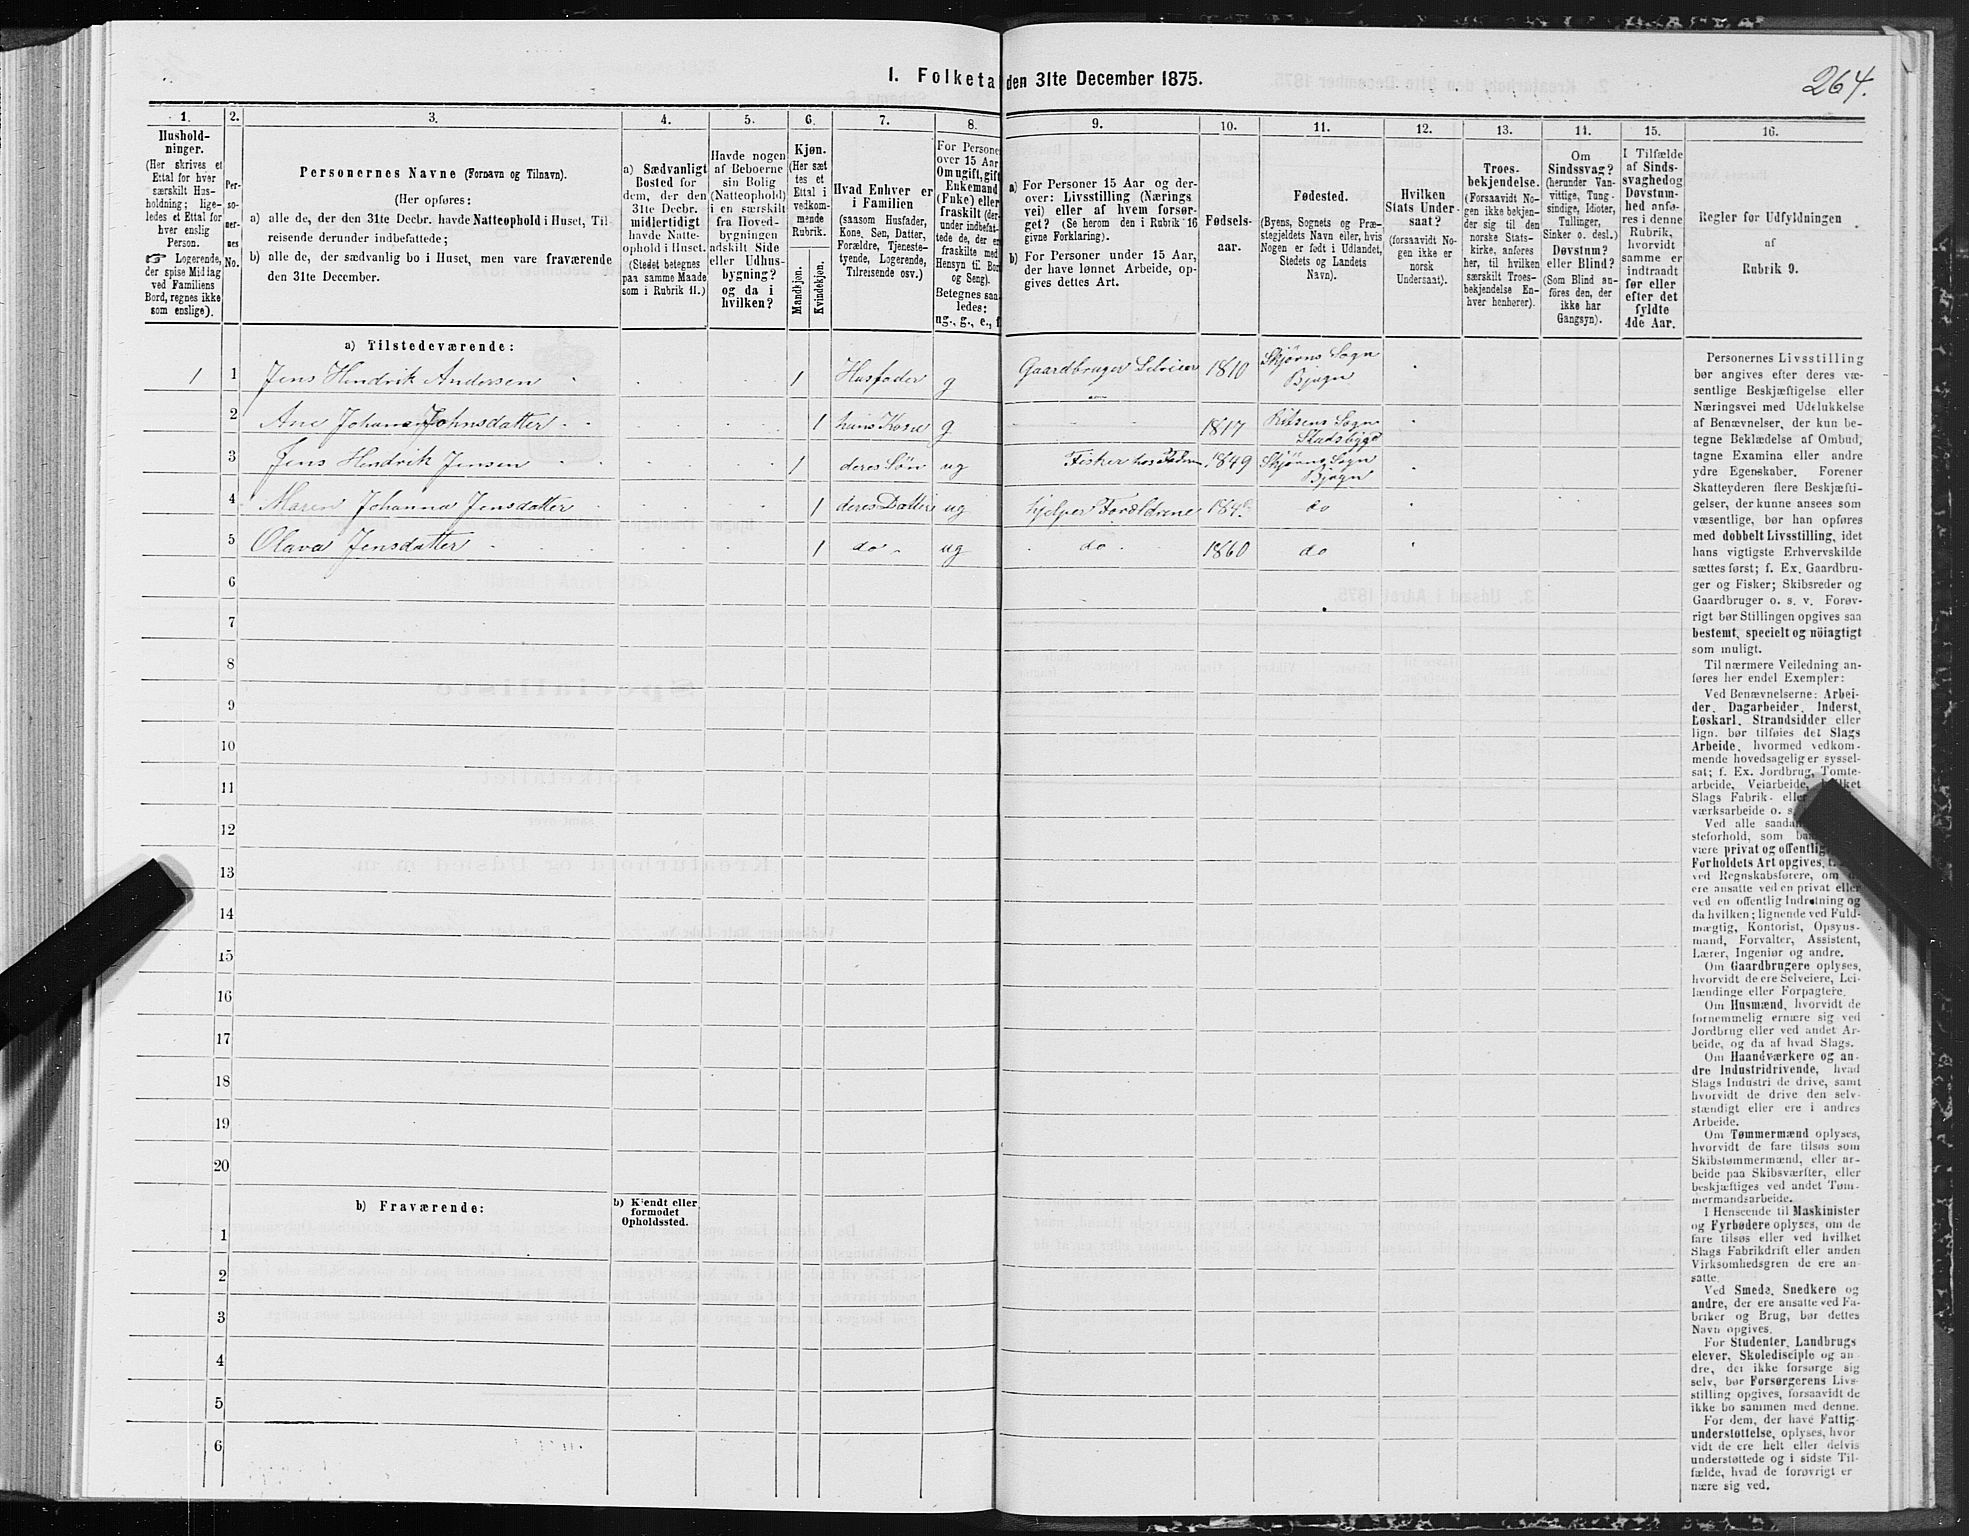 264.
I. Folketal den 31te December 1875.
1.
2.
3.
4.
5.
6.
7.
8.
9.
10.
11.
12.
13.
14.
15.
16.
Hushold-
ninger.
(Her skrives et
Ettal for hver
særskilt Hus-
holdning; lige-
ledes et Ettal for
hver enslig
Person.
☞ Logerende,
der spise Middag
ved Familiens
Bord, regnes ikke
som enslige).
Per-
so-
ner-
nes
No.
Personernes Navne (Fornavn og Tilnavn).
(Her opføres:
a) alle de, der den 31te Decbr. havde Natteophold i Huset, Til-
reisende derunder indbefattede;
b) alle de, der sædvanlig bo i Huset, men vare fraværende
den 31te December.
a) Sædvanligt
Bosted for
dem, der den
31te Decbr.
midlertidigt
havde Natte-
ophold i Huset.
(Stedet betegnes
paa samme Maade
som i Rubrik 11.)
Havde nogen
af Beboerne
sin Bolig
(Natteophold)
i en særskilt
fra Hoved-
bygningen
adskilt Side
eller Udhus-
bygning?
og da i
hvilken?
Kjøn.
(Her sæt
tes et
Ettal i
vedkom-
mende
Rubrik.
Mandkjøn.
Kvindekjøn.
Hvad Enhver er
i Familien
(saasom Husfader,
Kone, Søn, Datter,
Forældre, Tjeneste-
tyende, Logerende,
Tilreisende osv.)
For Persone
over 15 Aar
Om ugift, gift
Enkemand
(Enke) eller
fraskilt (der-
under indbefat-
tede de, der er
fraskilte med
Hensyn til Bor
og Seng).
Betegnes saa-
ledes:
ug., g., e., f
a) For Personer 15 Aar og der-
over: Livsstilling (Nærings
vei) eller af hvem forsør-
get? (Se herom den i Rubrik 16
givne Forklaring).
b) For Personer under 15 Aar,
der have lønnet Arbeide, op-
gives dettes Art.
Fødsels-
aar.
Fødested.
(Byens, Sognets og Præ-
stegjeldets Navn eller, hvis
Nogen er født i Udlandet,
Stedets og Landets
Navn).
Hvilken
Stats Under-
saat?
(forsaavidt No-
gen ikke er
norsk
Undersaat).
Troes-
bekjendelse.
(Forsaavidt No-
gen ikke bekjen-
der sig til den
norske Stats-
kirke, anføres
her, til hvilken
særskilt Troes-
bekjendelse En-
hver henhører).
Om
Sindssvag?
(herunder Van-
vittige, Tung-
sindige, Idioter,
Tullinger,
Sinker o. desl.)
Døvstum?
eller Blind?
(Som Blind an-
føres den, der
ikke har
Gangsyn).
I Tilfælde
af Sinds-
svaghed og
Døvstum-
hed anfø-
res i denne
Rubrik,
hvorvidt
samme er
indtraadt
før eller
efter det
fyldte
4de Aar.
Regler for Udfyldningen
af
Rubrik 9.
a) Tilstedeværende:
1 1 Jens Hendrik Andersen 1 Husfader g Gaardbruger Selveier 1810 Skjørns Sogn
Bjugn
2 Ane Johanna Johnsdatter 1 hans Kone g 1817 Ritsens Sogn
Stadsbygd
3 Jens Hendrik Jensen 1 deres Søn ug Fisker hos Faderen 1849 Skjørns Sogn
Bjugn
4 Maren Johanna Jensdatter 1 deres Datter ug hjelper Forældrene do
5 Olava Jensdatter 1 do ug do 1860 do
6
7
8
9
10
11
12
13
14
15
16
17
18
19
20
b) Fraværende:
b) Kjendt eller
formodet
Opholdssted.
1
2
3
4
5
6
Personernes Livsstilling
bør angives efter deres væ-
sentlige Beskjæftigelse eller
Næringsvei med Udelukkelse
af Benævnelser, der kun be-
tegne Beklædelse af Ombud,
tagne Examina eller andre
ydre Egenskaber. Forener
Skatteyderen flere Beskjæfti-
gelser, der kunne ansees som
væsentlige, bør han opføres
med dobbelt Livsstilling, idet
hans vigtigste Erhvervskilde
sættes først; f. Ex. Gaardbru-
ger og Fisker; Skibsreder og
Gaardbruger o. s. v. Forøv-
rigt bør Stillingen opgives saa
bestemt, specielt og nöiagtigt
som muligt.
Til nærmere Veiledning an-
føres her endel Exempler:
Ved Benævnelserne: Arbei-
der, Dagarbeider, Inderst,
Løskarl, Strandsidder eller
lign. bør tilføies det Slags
Arbeide, hvormed vedkom-
mende hovedsagelig er syssel-
sat; f. Ex. Jordbrug, Tomte-
arbeide, Veiarbeide, hvilket
Slags Fabrik- eller
værksarbeide o. s.
Ved alle saadan
steforhold, som
være privat og offentlig
Forholdets Art opgives,
ved Regnskabsførere, om
ere ansatte ved en privat eller
ved en offentlig Indretning og
da hvilken; lignende ved Fuld-
mægtig, Kontorist, Opsyns-
mand, Forvalter, Assistent,
Lærer, Ingeniør og andre.
Om Gaardbrugere oplyses,
hvorvidt de ere Selveiere, Lei-
lændinge eller Forpagtere.
Om Husmænd, hvorvidt de
fornemmelig ernære sig ved
Jordbrug eller ved andet Ar-
beide, og da af hvad Slags.
Om Haandværkere og an-
dre Industridrivende, hvad
Slags Industri de drive, samt
hvorvidt de drive den selv-
stændigt eller ere i andres
Arbeide.
Om Tømmermænd oplyses,
hvorvidt de fare tilsøs som
Skibstømmermænd, eller ar-
beide paa Skibsværfter, eller
beskjæftiges ved andet Tøm-
mermandsarbeide.
I Henseende til Maskinister
og Fyrbødere oplyses, om de
fare tilsøs eller ved hvilket
Slags Fabrikdrift eller anden
Virksomhedsgren de ere an-
satte.
Ved Smede, Snedkere og
andre, der ere ansatte ved Fa-
briker og Brug, bør dettes
Navn opgives.
For Studenter, Landbrugs
elever, Skoledisciple og an-
dre, der ikke forsørge sig
selv, bør Forsørgerens Livs-
stilling opgives, forsaavidt de
ikke bo sammen med denne.
For dem, der have Fattig-
understøttelse, oplyses, hvor
vidt de ere helt eller delvis
understøttede og i sidste Til-
fælde, hvad de forøvrigt er
nære sig ved.